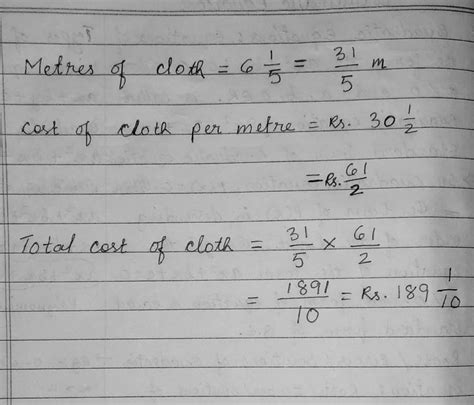 Metres of cloth = 6 1/5 = 31/5 m
Cost of cloth per metre = Rs. 30 1/2
= Rs. 61/2
Total cost of cloth = 31/5 × 61/2
= 1891/10 = Rs. 189 1/10